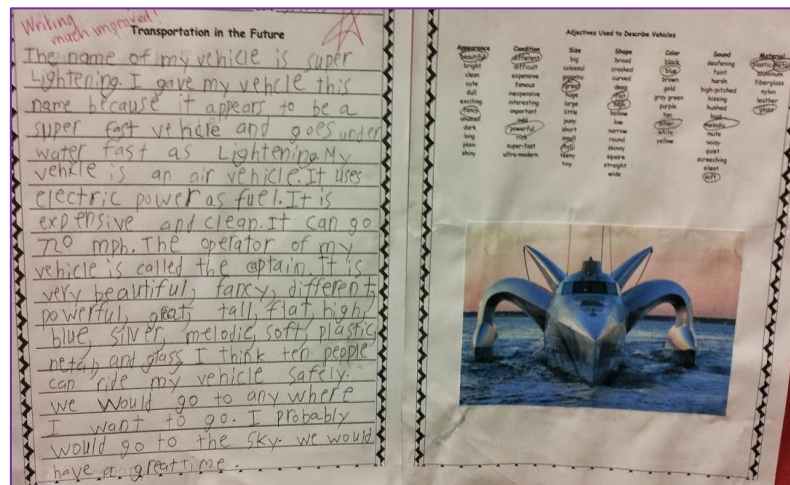 Writing
much improved!
Transportation in the Future
The name of my vehicle is super
Lightening. I gave my vehcle this
name because it appears to be a
super fast vehicle and goes under
water fast as Lightening. My
vehicle is an air vehicle. It uses
electric power as fuel. It is
expensive and clean. It can go
720 mph. The operator of my
vehicle is called the aptain. It is
very beautiful, fancy, different,
powerful, great, tall, flat, high,
blue, silver, melodic, soft, plastic,
metal, and glass. I think ten people
can ride my vehicle safely.
we would go to any where
I want to go. I probably
would go to the sky. we would
have great time.
Adjectives Used to Describe Vehicles
Appearance Condition Size Shape Color Sound Material
beautiful different big broad black deafening plastic metal
bright difficult colossal crooked blue faint aluminum
clean expensive gigantic curved brown harsh fiberglass
cute famous great deep gold high-pitched nylon
dull inexpensive huge flat gray green hissing leather
exciting interesting large high purple hushed glass
fancy important little hollow tan loud
unusual odd puny low silver melodic
dark powerful short narrow white mute
long rich small round yellow noisy
plain super-fast tall skinny quiet
shiny ultra-modern teeny square screeching
tiny straight silent
wide soft